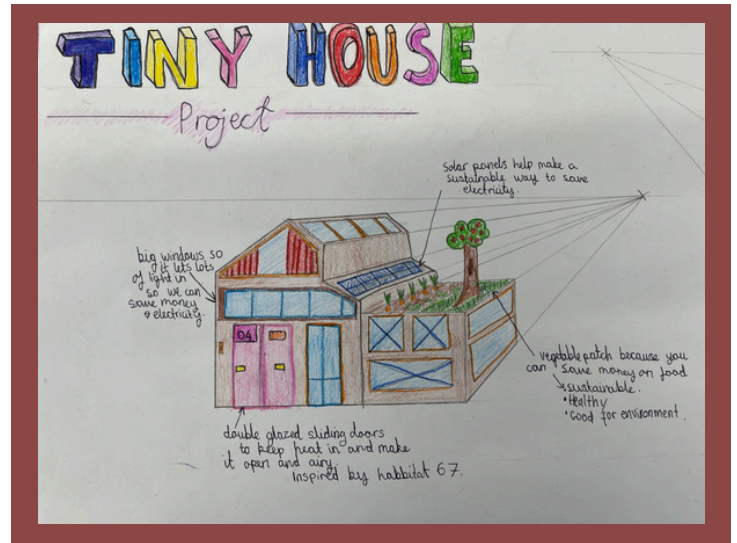 TINY HOUSE
Project
solar panels help make a
sustainable way to save
electricity.
big windows so
it lets lots
of light in
so we can
save money
& electricity.
04
vegetable patch because you
can save money on food
sustainable.
•Healthy
•Good for environment.
double glazed sliding doors
to keep heat in and make
it open and airy.
Inspired by habbitat 67.